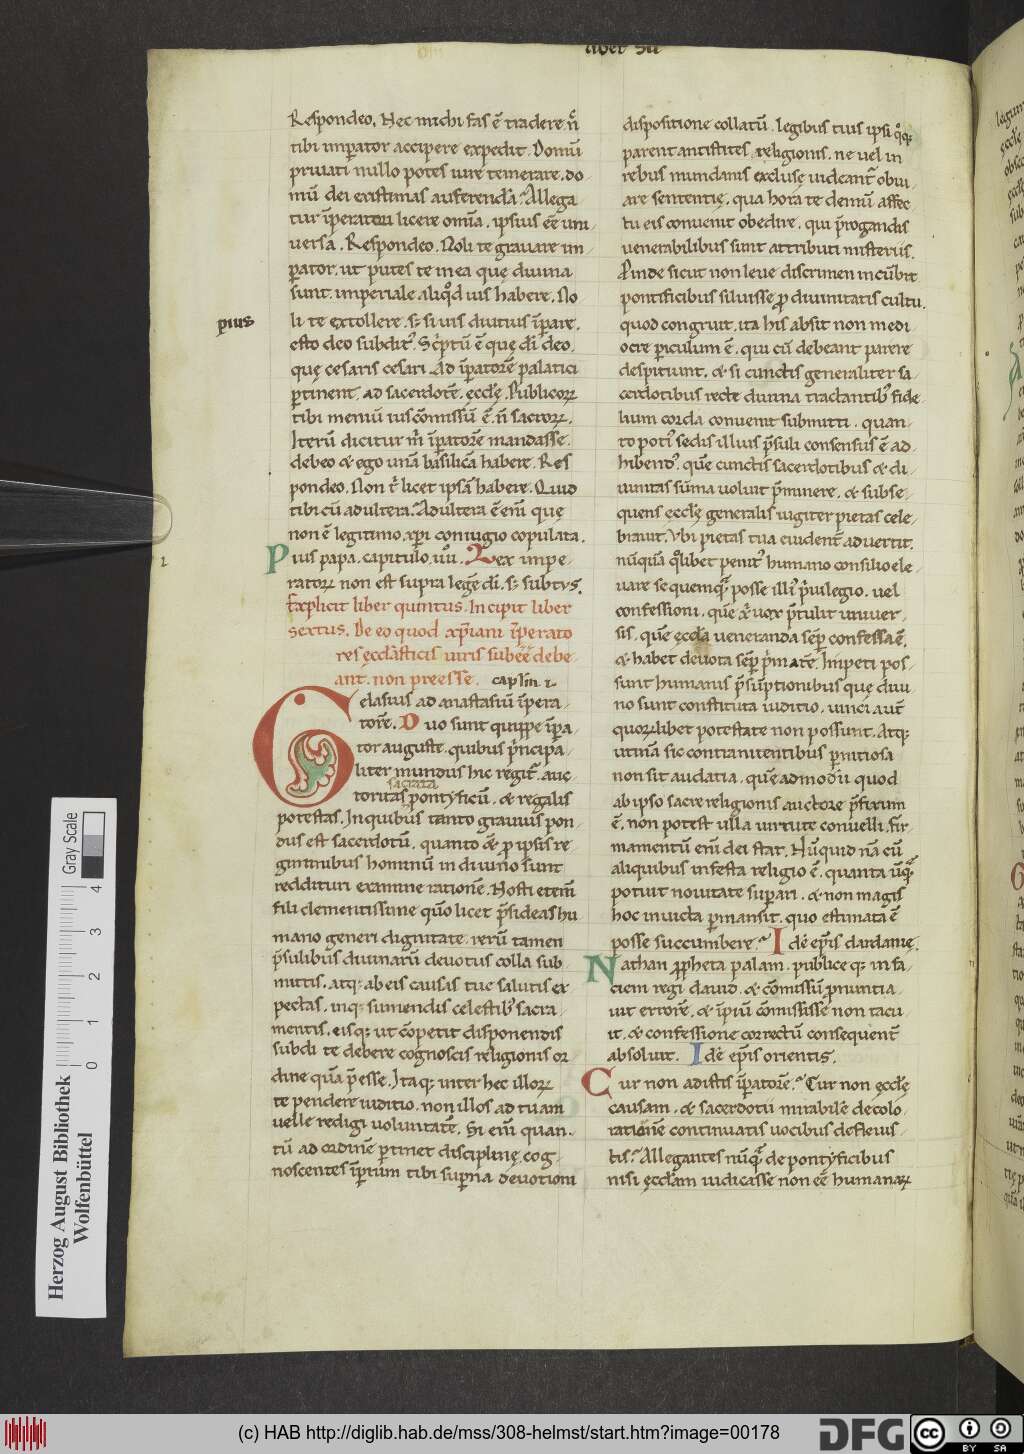 Respondeo. Hec michi fas ē tradere. n̄
tibi imperator accipere expedit. Domū
priuati nullo potes iure temerare. do
mū dei existimas auferendā? Allega
tur īperatori licere omīa. ipsius eē uni
uersa. Respondeo. Noli te grauare im
perator. ut putes te in ea quę diuina
sunt imperiale aliqd ius habere. No
li te extollere. s; si uis diutius īpare.
pius
esto deo subdit. Scptū ē quę di deo.
quę cesaris cesari. Ad īpatorē palatici
ptinent. ad sacerdotē ęcclę. Publicorꝝ
tibi meniū ius cōmissū ē. n̄ sacrorꝝ.
Iterū dicitur m̄ īpatorē mandasse.
debeo & ego unā basilicā habere. Res
pondeo. Non t̄ licet ipsā habere. Quid
tibi cū adultera. Adultera ē enī que
non ē legitimo xpi coniugio copulata.
Pius papa. capitulo. uu. Lex impe
ratorꝝ non est supra legē di. s; subtus.
Explicit liber quintus. Incipit liber
sextus. De eo quod xpiani īperato
res ęcclasticis uiris subeē debe
ant. non preesse. caplm. i.
Gelasius ad anastasiū īpera
torē. Duo sunt quippe īpa
tor auguste. quibus pncipa
liter mundus hic regit. auc
sacrata
toritas pontyficū. & regalis
potestas. In quibus tanto grauius pon
dus est sacerdotū. quanto &ē p ipsis re
giminibus hominū in diuino sunt
reddituri examine rationē. Nosti etenī
fili clementissime quō licet psideas hu
mano generi dignitate. rerū tamen
psulibus diuinarū deuotus colla sub
mittis. atq; ab eis causas tuę salutis ex
pectas. inq; sumendis celestib sacra
mentis. eisq; ut cōpetit disponendis
subdi te debere cognoscis religionis or
dine quā peesse. Itaq; inter hec illorꝝ
te pendere iuditio. non illos ad tuam
uelle redigi uoluntatē. Si enī quan
tū ad ordinē ptinet disciplinę. cog
noscentes īperium tibi supna deuotioni
liber
dispositione collatū. legibus tuis ipsi qq;
parent antistites religionis. ne uel in
rebus mundanis exclusę uideant obui
are sententię. qua hora te demū affec
tu eis conuenit obedire. qui progandis
uenerabilibus sunt attributi misteriis.
Pinde sicut non leue discrimen incūbit
pontificibus siluisse p diuinitatis cultu.
quod congruit. ita his absit non medi
ocre piculum ē. qui cū debeant parere
despitiunt. & si cunctis generaliter sa
cerdotibus recte diuina tractantib fide
lium corda conuenit submitti. quan
to poti sedis illius psuli consensus ē ad
hibend. quē cunctis sacerdotibus & di
uinitas sūma uoluit pminere. & subse
quens ecclę generalis iugiter pietas cele
brauit. Vbi pietas tua euident aduertit.
nūquā qlibet penit humano consilio ele
uare se quemqȝ posse illi priuilegio. uel
confessioni. quē x uox ptulit uniuer
sis. quē ęccla ueneranda semp confessa ē.
& habet deuota semp pmatē. Impeti pos
sunt humanis psūptionibus quę diui
no sunt constituta iuditio. uinci aut
quorꝝlibet potestate non possunt. Atq;
utinā sic contra nitentibus pnitiosa
non sit audatia. quēadmodū quod
ab ipso sacre religionis auctore pfixum
ē. non potest ulla uirtute conuelli. fir
mamentū enī dei stat. Nūquid nā cū
aliquibus infesta religio ē. quanta ūq
potuit nouitate supari. & non magis
hoc inuicta pmansit. quo estimata ē
posse succumbere? Idē epis dardanię.
Nathan ppheta palam. publice q; in fa
ciem regi dauid. & cōmissū pnuntia
uit errorē. & ipsū cōmisisse non tacu
it. & confessione correctū consequent
absoluit. Idē epis orientis.
Cur non adistis īpatorē? Cur non ęcclę
causam. & sacerdotii mirabile decolo
rationē continuatis uocibus defleuis
tis? Allegantes nūq de pontyficibus
nisi ęcclam iudicasse non eē humanaꝝ
Gray Scale
0 1 2 3 4
Herzog August Bibliothek
Wolfenbüttel
(c) HAB http://diglib.hab.de/mss/308-helmst/start.htm?image=00178
DFG
cc BY SA